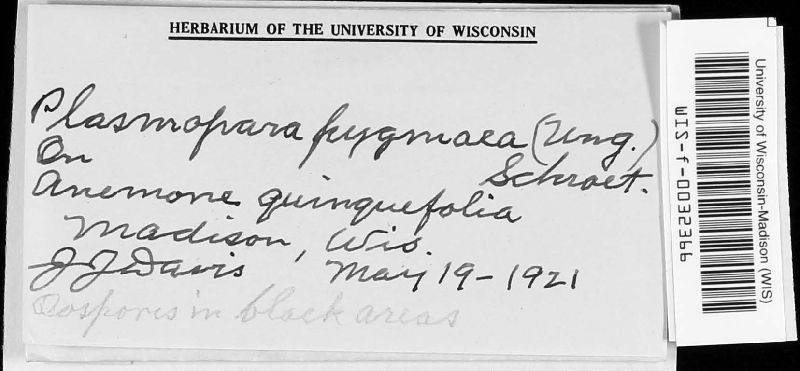 HERBARIUM OF THE UNIVERSITY OF WISCONSIN
Plasmopara pygmaea (Ung.)
Schroet.
On
Anemone quinquefolia
Madison, Wis.
J J Davis May 19-1921
Oospores in black areas
University of Wisconsin-Madison (WIS)
WIS-f-0032366